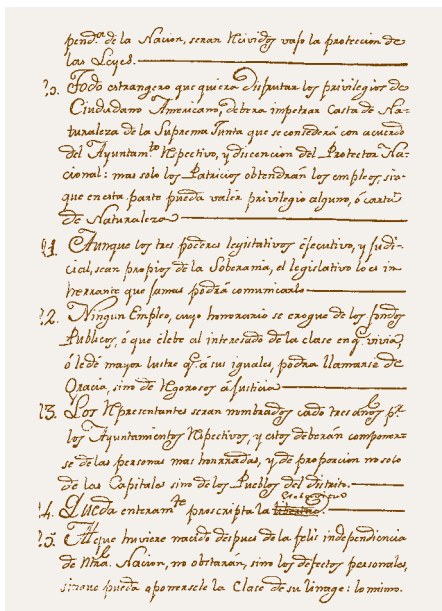 pend.ª de la Nacion, seran rcividos vajo la proteccion de
las Leyes.
20. Todo estrangero que quiera disfrutar los privilegios de
Ciudadano Americano, debera impetrar Carta de Na-
turaleza de la Suprema Junta que se concederá con acuerdo
del Ayuntam.to rspectivo, y discencion del Protector Na-
cional: mas solo los Patricios obtendrán los empleos, sin
que en esta parte pueda valer privilegio alguno, ó carta
de Naturaleza
21. Aunque los tres poderes legistativos éjecutivo, y judi-
cial, sean propios de la Soberania, el legislativo lo es in-
herrante que jamas podrá comunicarlo
22. Ningun Empleo, cuyo honorario se erogue de los fondos
Publicos, ó que élebe al interesado de la clase en q.e vivia,
ó le dé mayor lustre q.e á sus iguales, podra llamarse de
Gracia, sino de rigorosos á justicia
23. Los rpresentantes seran nombrados cada tres años p.r
los Ayuntamientos rspectivos, y estos deberán componer-
se de las personas mas honrradas, y de proporcion no solo
de las Capitales sino de los Pueblos del distrito.
24. Queda enteram.te proscripta la
25. Al que huviere nacido despues de la felis independencia
de ntra. Nacion, no obstarán, sino los defectos personales,
sinque pueda oponersele la Clase de su linage: lo mismo.